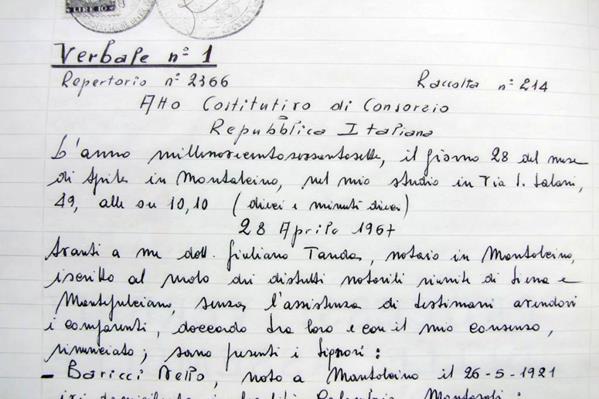 LIRE 10
Verbale n° 1
Repertorio n° 2366 Raccolta n° 214
Atto Costitutivo di Consorzio
Repubblica Italiana
L'anno millenovecentosessantasette, il giorno 28 del mese
di Aprile in Montalcino, nel mio studio in Via S. Saloni,
49, alle ore 10,10 (dieci e minuti dieci)
28 Aprile 1967
Avanti a me dott. Giuliano Tanda, notaio in Montalcino,
iscritto al ruolo dei distretti notarili riuniti di Siena e
Montepulciano, senza l'assistenza di testimoni avendovi
i comparenti, d'accordo tra loro e con il mio consenso,
rinunciato; sono presenti i Signori:
- Baricci Nello, nato a Montalcino il 26-5-1921
ivi domiciliato in località Colombaio Montosoli: